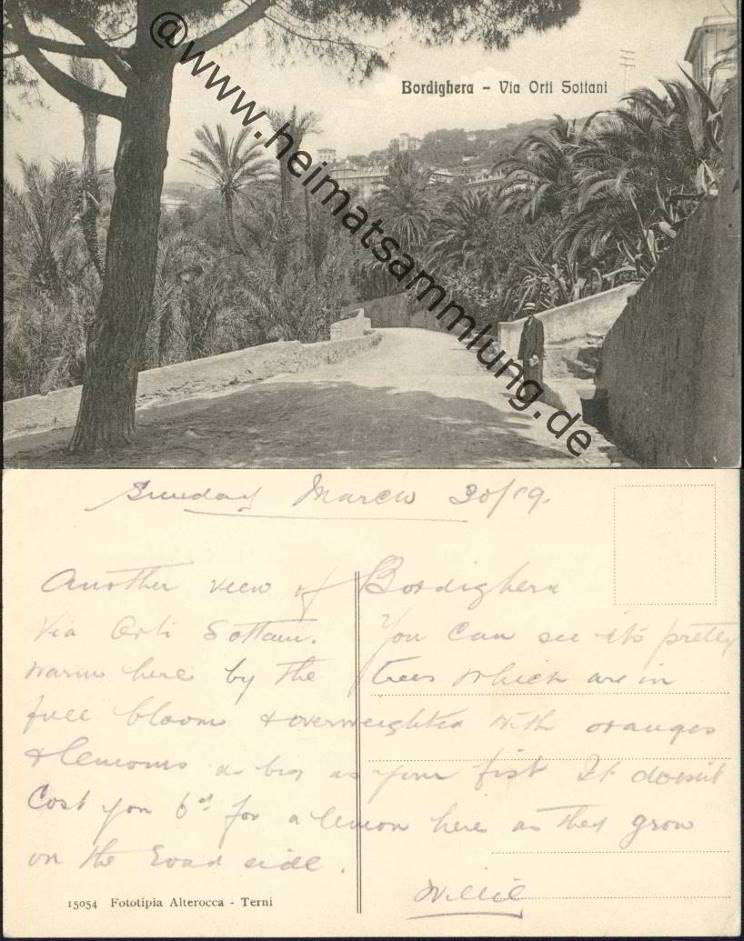 Bordighera - Via Orti Sottani
@www.heimatsammlung.de
Sunday March 30/19.
Another view of Bordighera
Via Orti Sottani. You can see it's pretty
warm here by the trees which are in
full bloom & overweighted with oranges
& lemons as big as your fist It doesn't
Cost you 6d for a lemon here as they grow
on the Road side.
Willie
15054 Fototipia Alterocca - Terni